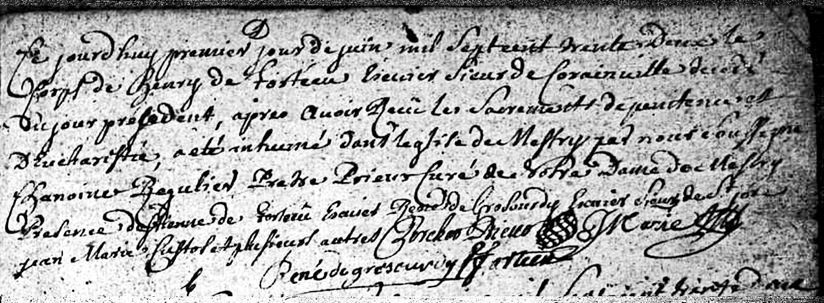 Ce jourdhuy premier jour de juin mil sept cent trente deux le
Corps de Henry de forteau Escuier Sieur de Corainville decedé
du jour presedent, apres avoir Reçü les Sacrements de penitence et
D'Eucharistie a été inhumé dans leglise de Mestry par nous soussigné
Chanoine Regulier Prestre Prieur Curé de Notre Dame de Mestry
Presence d'Estienne de forteau Escuier René de Escuier Sieur de
jean Marie Custos et plusieurs autres Marie
René de grosourdy forteau
Sept cent trente deux